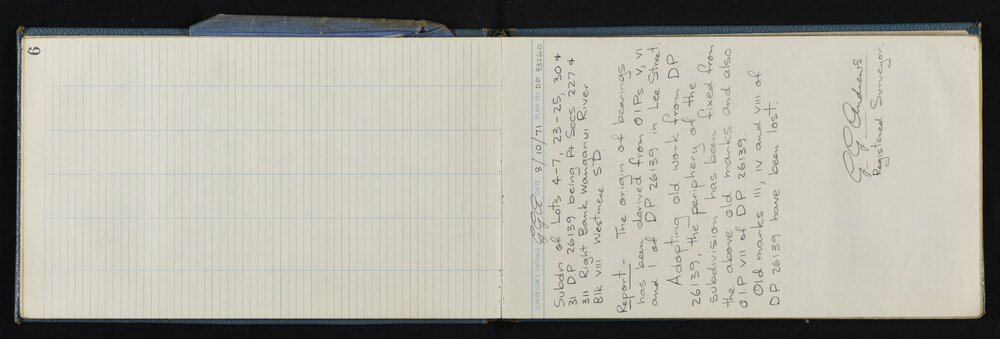 6
SURVEYOR'S INITIALS GGA DATE 8/10/71 PLAN No. DP 33260
Subdn of Lots 4-7, 23-25, 30 &
31 DP 26139 being Pt Secs 227 &
311 Right Bank Wanganui River
Blk VIII Westmere S D.
Report - The origin of bearings
has been derived from OIPs V, VI
and I of DP 26139 in Lee Street.
Adopting old work from DP
26139, the periphery of the
subdivision has been fixed from
the above old marks and also
OIP VII of DP 26139.
Old marks III, IV and VIII of
DP 26139 have been lost.
G. G. Andrews
Registered Surveyor.